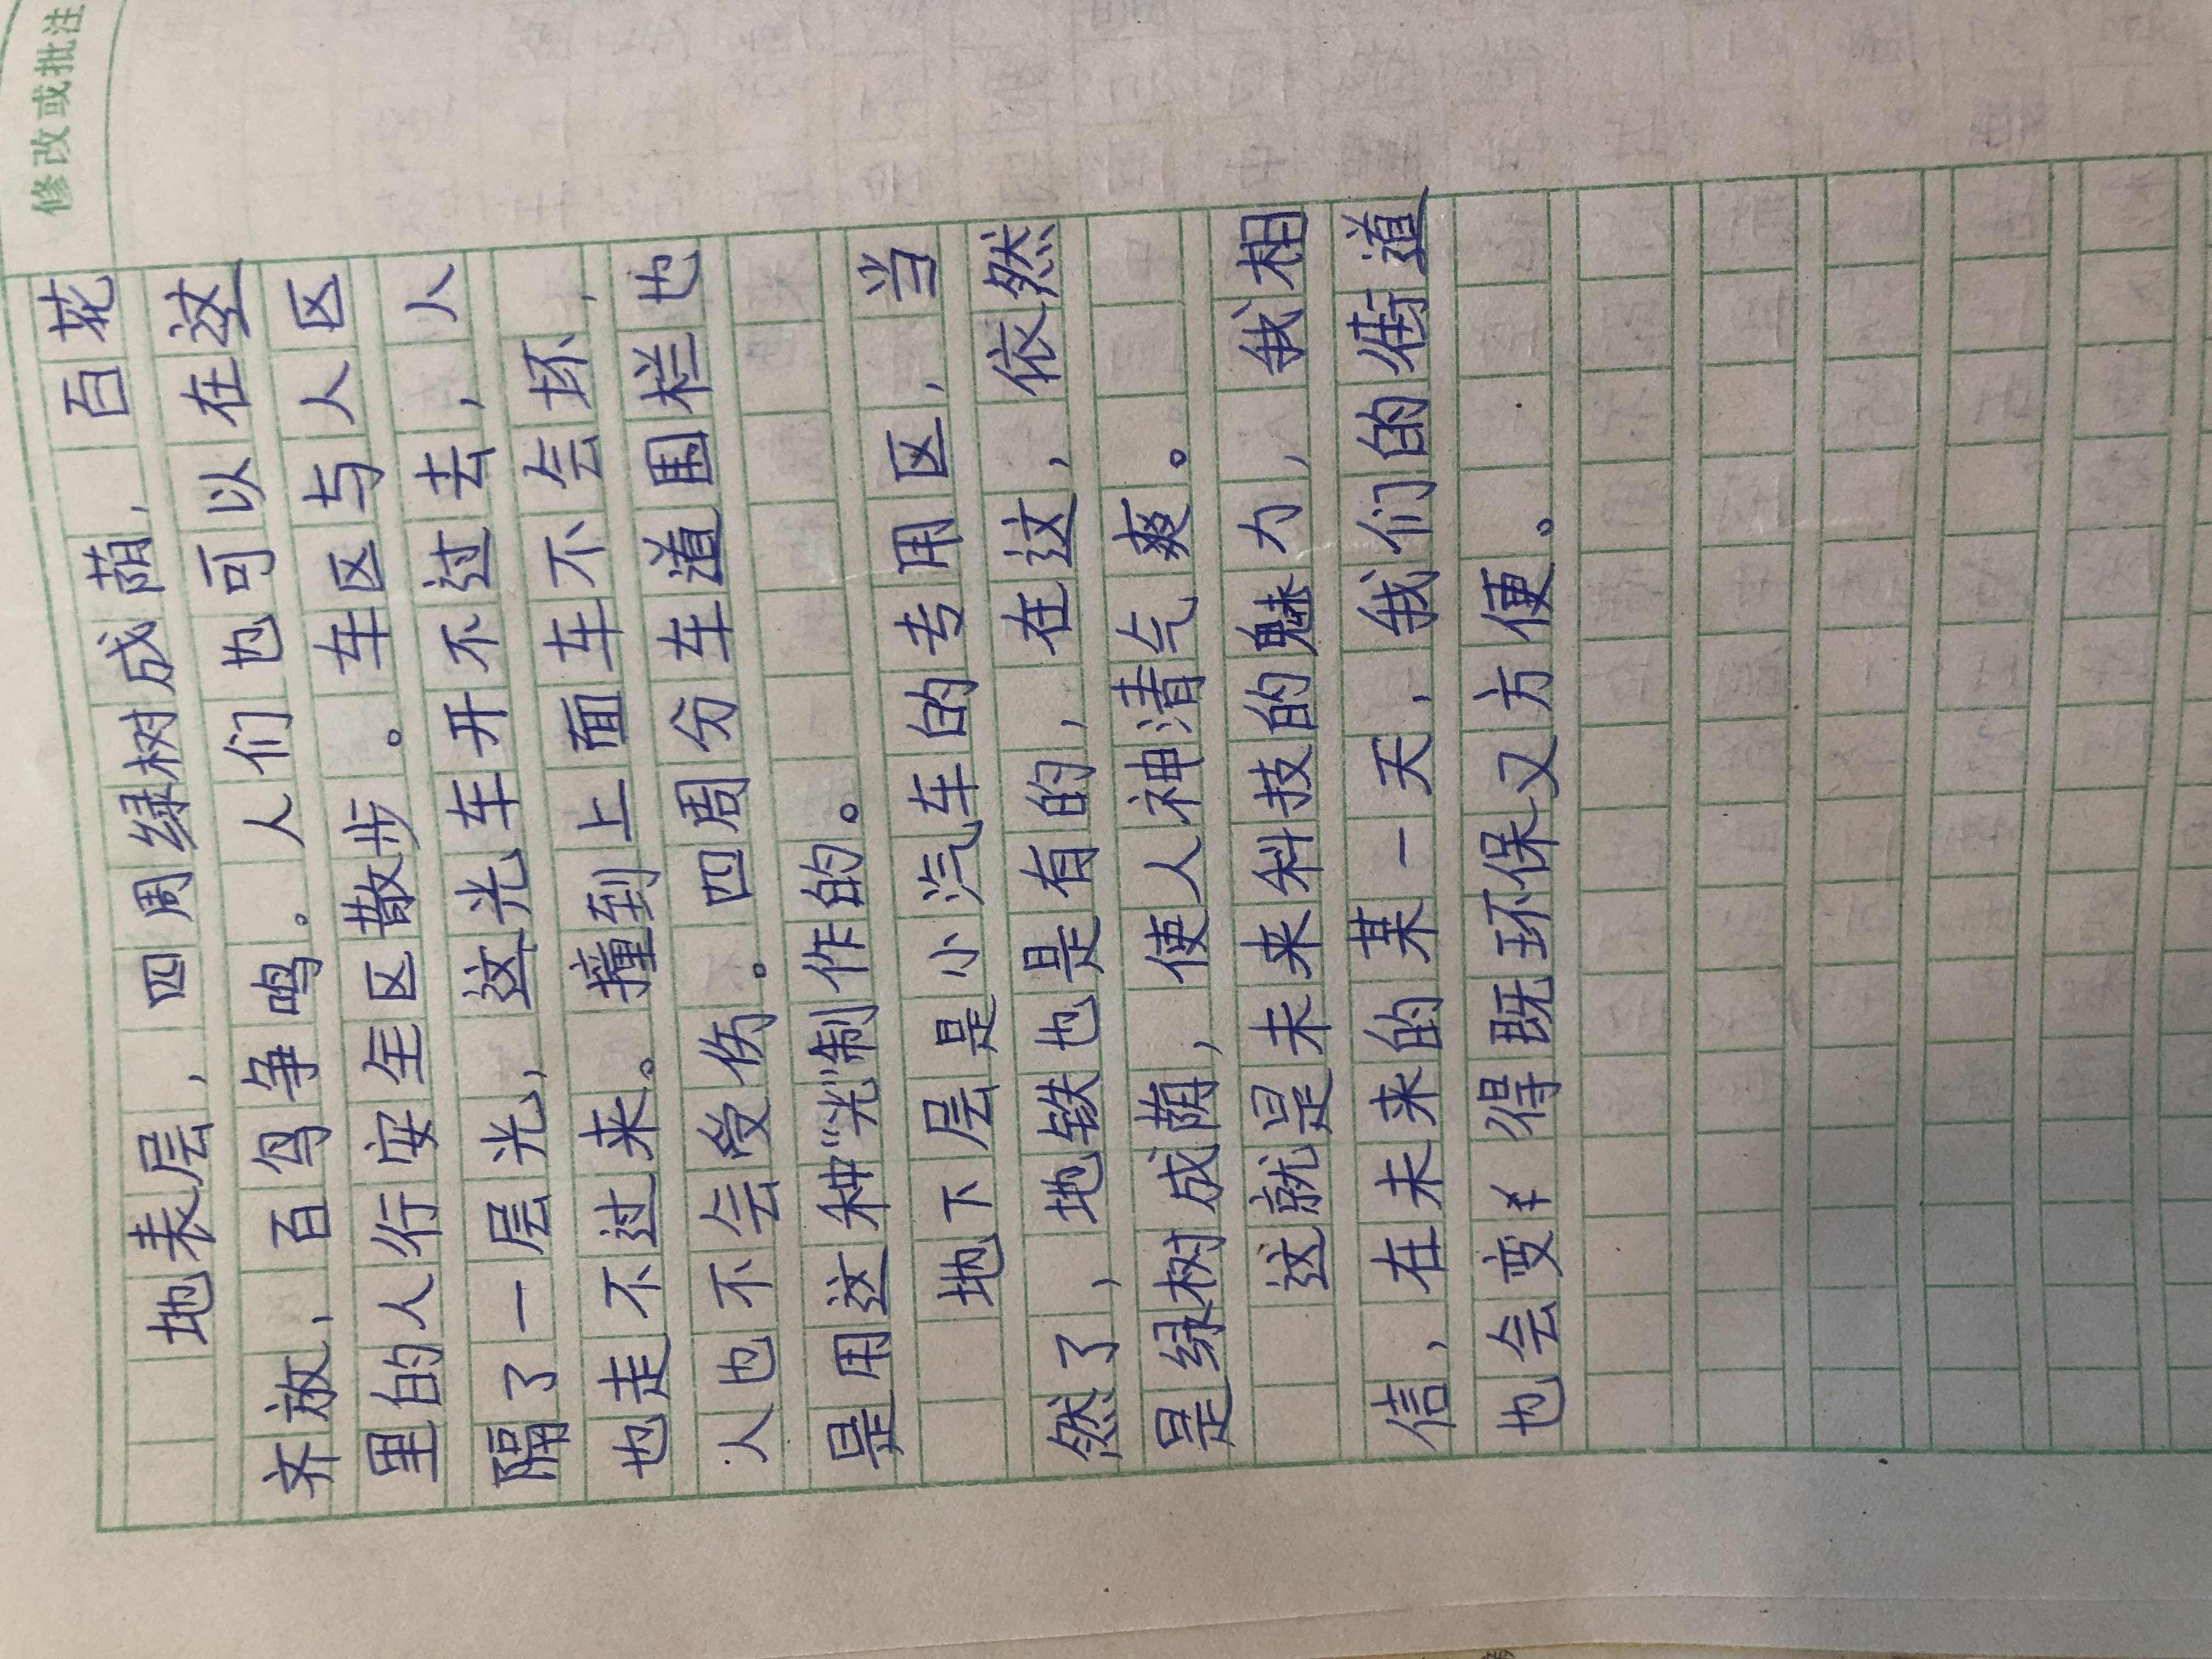 修改或批注
地表层，四周绿树成荫，百花
齐放，百鸟争鸣。人们也可以在这
里的人行安全区散步。车区与人区
隔了一层光，这光车开不过去，人
也走不过来。撞到上面车不会坏，
人也不会受伤。四周分车道围栏也
是用这种“光”制作的。
地下层是小汽车的专用区，当
然了，地铁也是有的，在这，依然
是绿树成荫，使人神清气爽。
这就是未来科技的魅力，我相
信，在未来的某一天，我们的街道
也会变得既环保又方便。